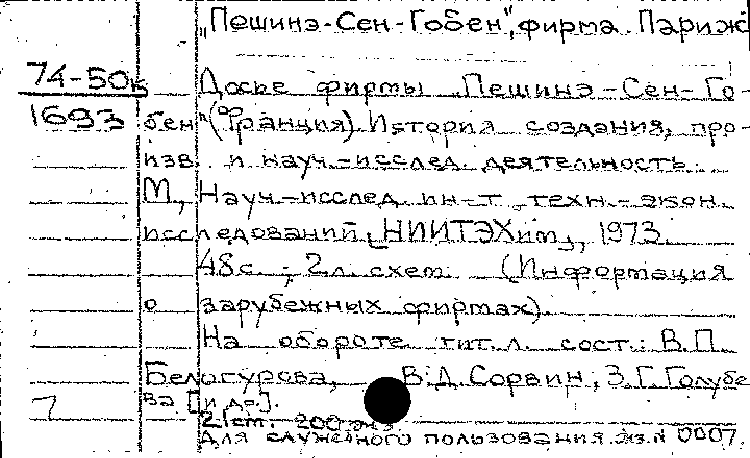 „Пешинэ-Сен-Гобен", фирма. Париж
74-50к Досье фирмы „Пешинэ-Сен-Го-
1693 бен" (Франция). История создания, про-
изв. и науч.-исслед. деятельность.
М., Науч.-исслед. ин-т техн.-экон.
исследований „НИИТЭХим", 1973.
48 с.; 2 л. схем. (Информация
о зарубежных фирмах).
На обороте тит. л. сост.: В.П.
Белогурова, В.Д. Сорвин, З.Г. Голубе
7 ва [и др.].
2 ст. 200 экз.
Для служебного пользования. Экз. № 0007.